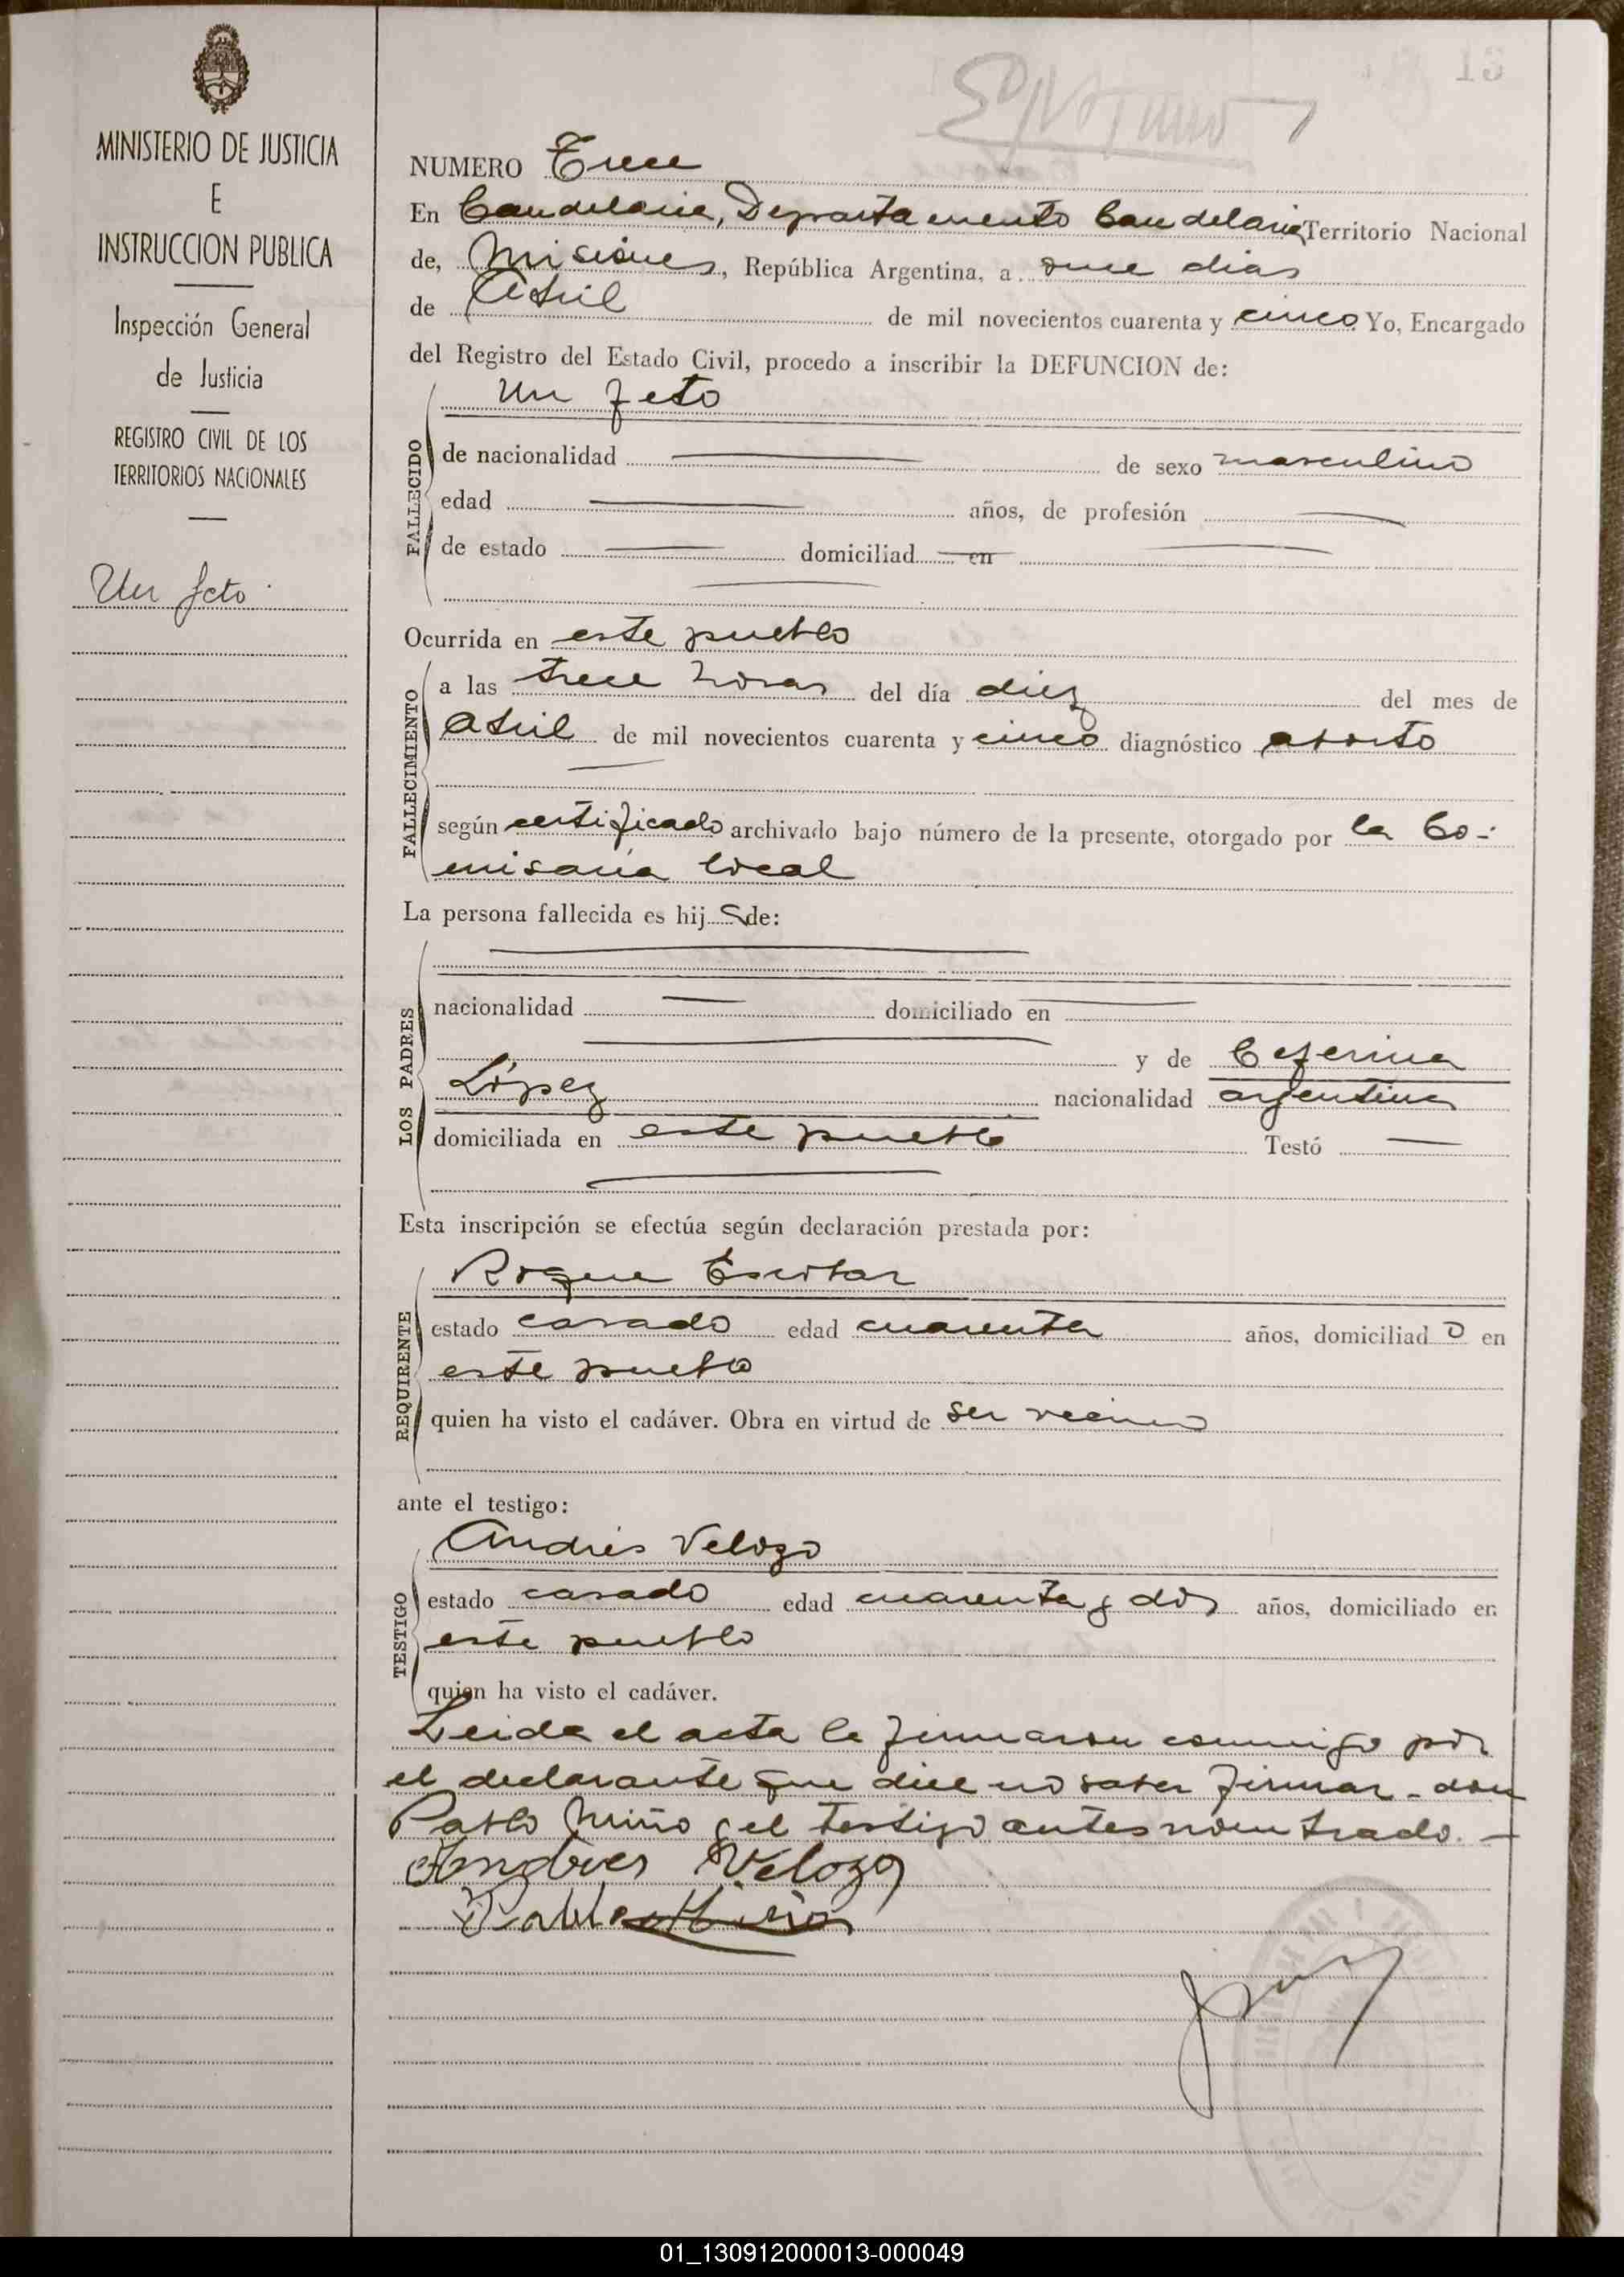 MINISTERIO DE JUSTICIA
E
INSTRUCCION PUBLICA
Inspección General
de Justicia
REGISTRO CIVIL DE LOS
TERRITORIOS NACIONALES
Un feto
NUMERO Trece
En Candelaria, Departamento Candelaria Territorio Nacional
de, Misiones, República Argentina, a once dias
de Abril de mil novecientos cuarenta y cinco Yo, Encargado
del Registro del Estado Civil, procedo a inscribir la DEFUNCION de:
FALLECIDO
Un feto
de nacionalidad de sexo masculino
edad años, de profesión
de estado domiciliad en
Ocurrida en este pueblo
FALLECIMIENTO
a las trece horas del día diez del mes de
Abril de mil novecientos cuarenta y cinco diagnóstico aborto
según certificado archivado bajo número de la presente, otorgado por la Co-
misaria local
La persona fallecida es hij o de:
LOS PADRES
nacionalidad domiciliado en
y de Ceferina
López nacionalidad argentina
domiciliada en este pueblo Testó
Esta inscripción se efectúa según declaración prestada por:
REQUIRENTE
Roque Escobar
estado casado edad cuarenta años, domiciliad o en
este pueblo
quien ha visto el cadáver. Obra en virtud de ser vecino
ante el testigo:
TESTIGO
Andrés Velozo
estado casado edad cuarenta y dos años, domiciliado en
este pueblo
quien ha visto el cadáver.
Leida el acta la firmaron conmigo por
el declarante que dice no saber firmar - don
Pablo Miño y el testigo antes nombrado. -
Andres Velozo
Pablo Miño
01_130912000013-000049